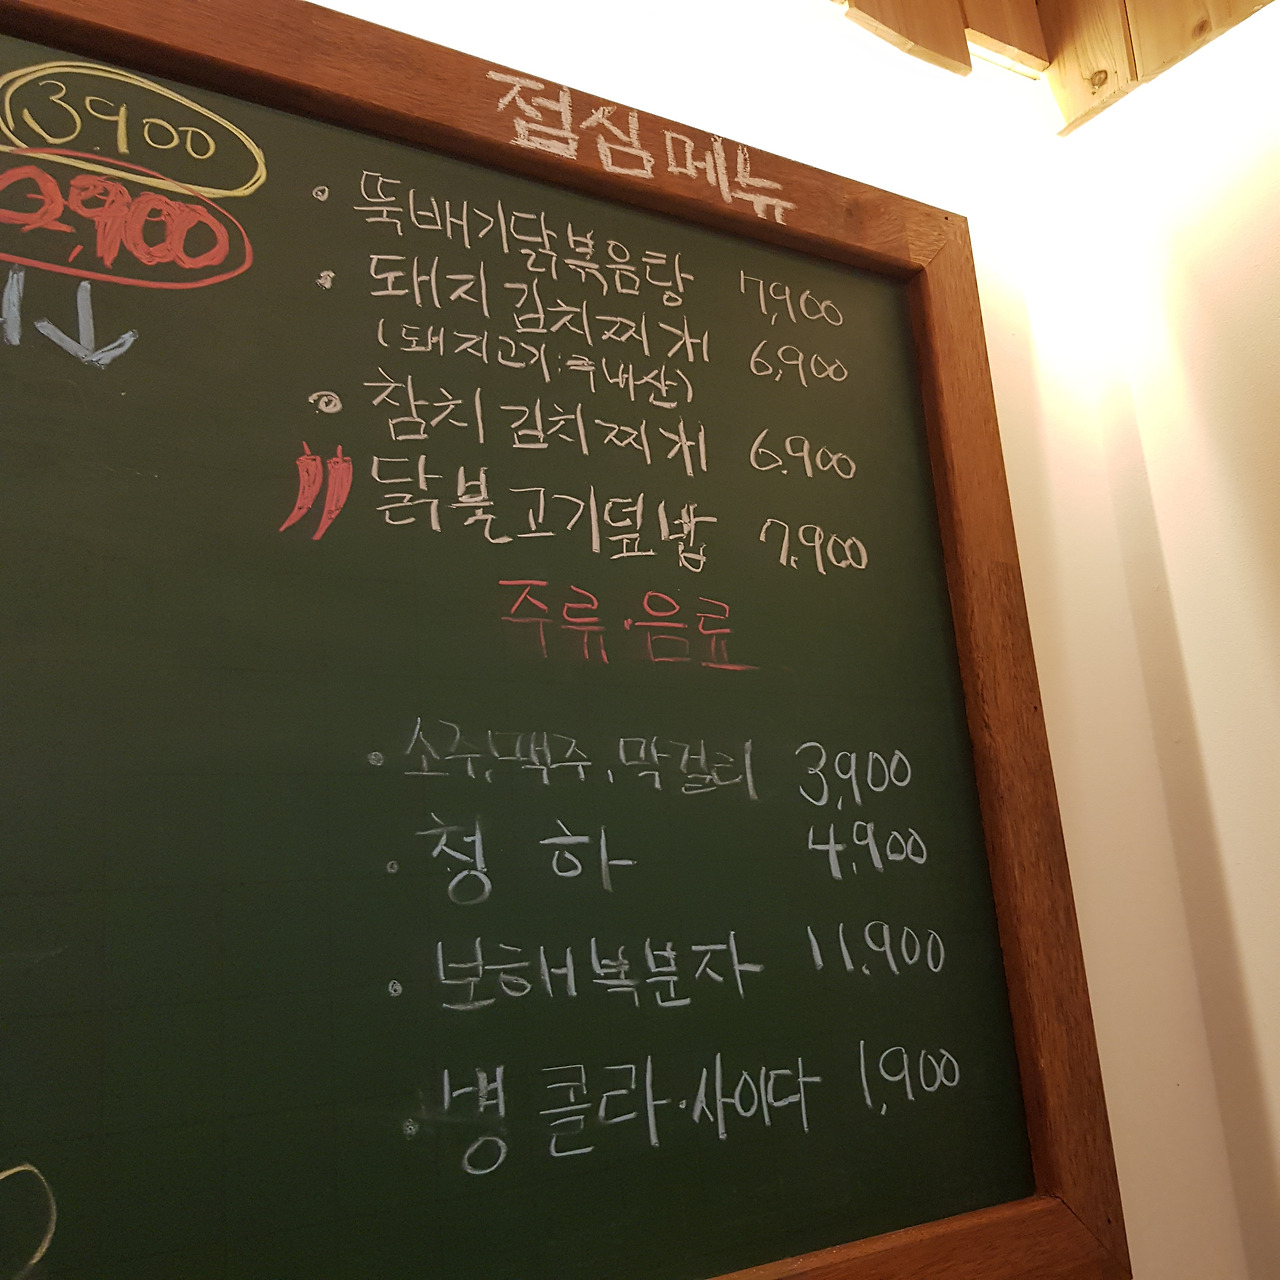 3,900
2,900
점심메뉴
뚝배기닭볶음탕 7,900
돼지김치찌개 6,900
(돼지고기:국내산)
참치김치찌개 6,900
닭불고기덮밥 7,900
주류·음료
소주,맥주,막걸리 3,900
청하 4,900
보해복분자 11,900
냉콜라·사이다 1,900